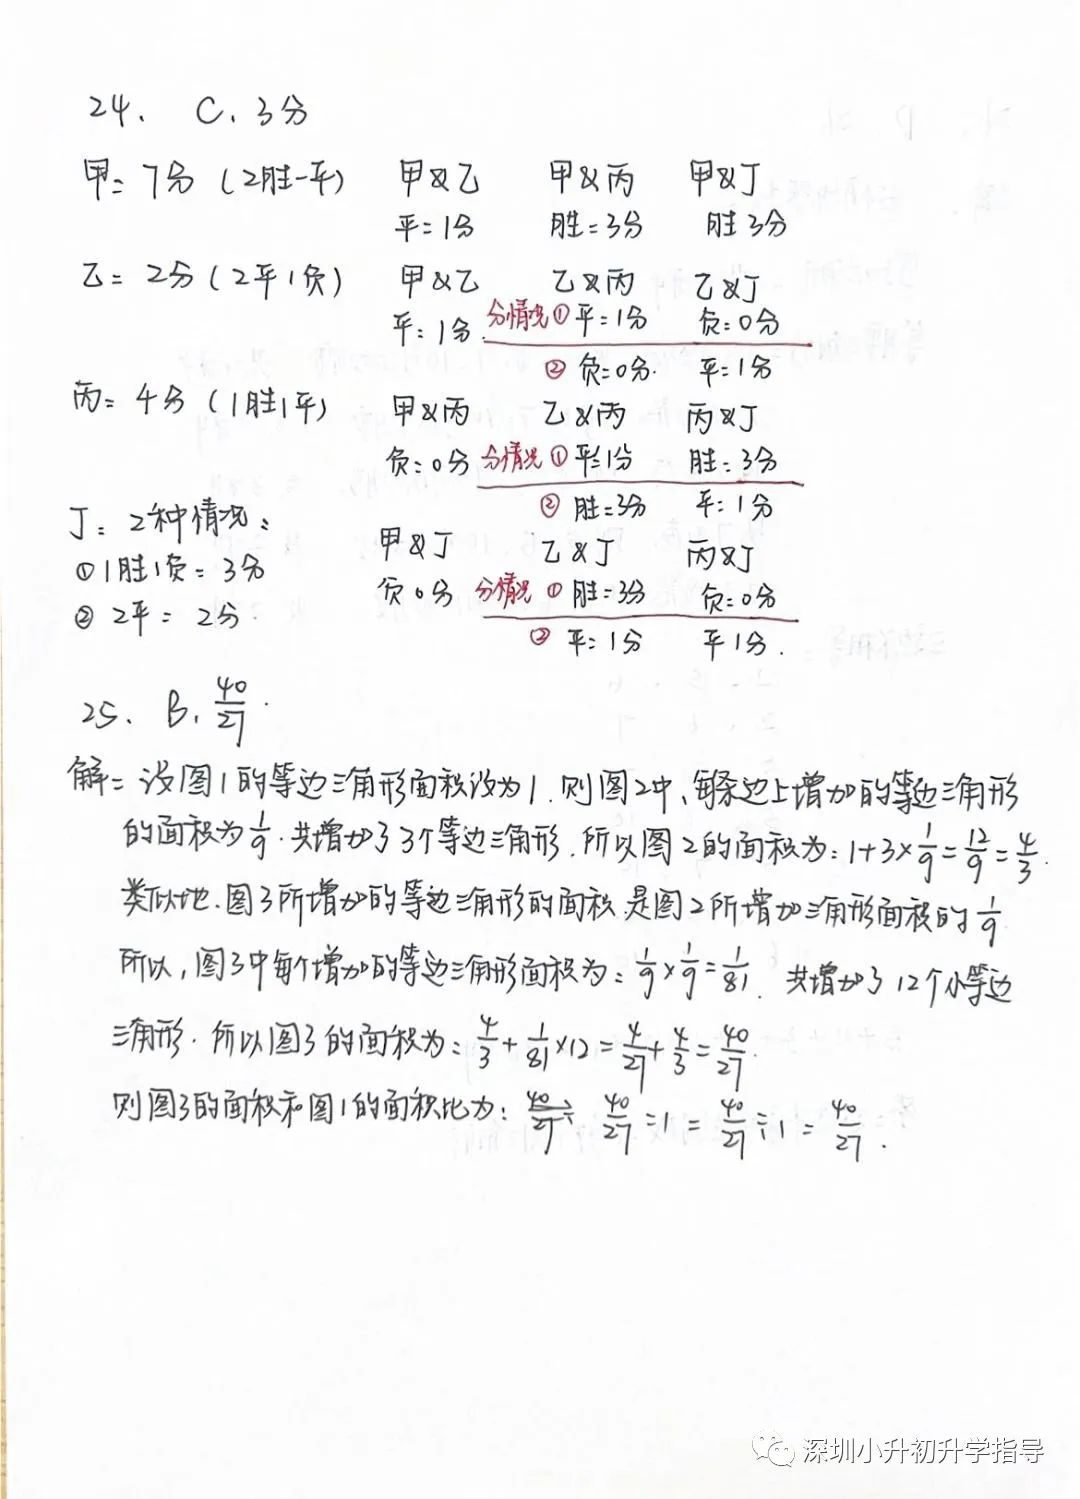 24. C. 3分
甲: 7分 (2胜一平) 甲&乙 甲&丙 甲&丁
平: 1分 胜: 3分 胜 3分
乙: 2分 (2平1负) 甲&乙 乙&丙 乙&丁
平: 1分 分情况 ① 平: 1分 负: 0分
② 负: 0分. 平: 1分
丙: 4分 (1胜1平) 甲&丙 乙&丙 丙&丁
负: 0分 分情况 ① 平: 1分 胜: 3分
② 胜: 3分 平: 1分
丁: 2种情况:
甲&丁 乙&丁 丙&丁
① 1胜1负: 3分
负 0分 分情况 ① 胜: 3分 负: 0分
② 2平: 2分
② 平: 1分 平 1分.
25. B. 40/27.
解: 设图1的等边三角形面积设为1. 则图2中, 每条边上增加的等边三角形
的面积为1/9. 共增加了3个等边三角形. 所以图2的面积为: 1+3×1/9=12/9=4/3.
类似地. 图3所增加的等边三角形的面积是图2所增加三角形面积的1/9
所以, 图3中每个增加的等边三角形面积为: 1/9×1/9=1/81. 共增加了12个小等边
三角形. 所以图3的面积为: 4/3+1/81×12=4/27+4/3=40/27.
则图3的面积和图1的面积比为: 40/27÷ 40/27:1=40/27÷1=40/27.
深圳小升初升学指导